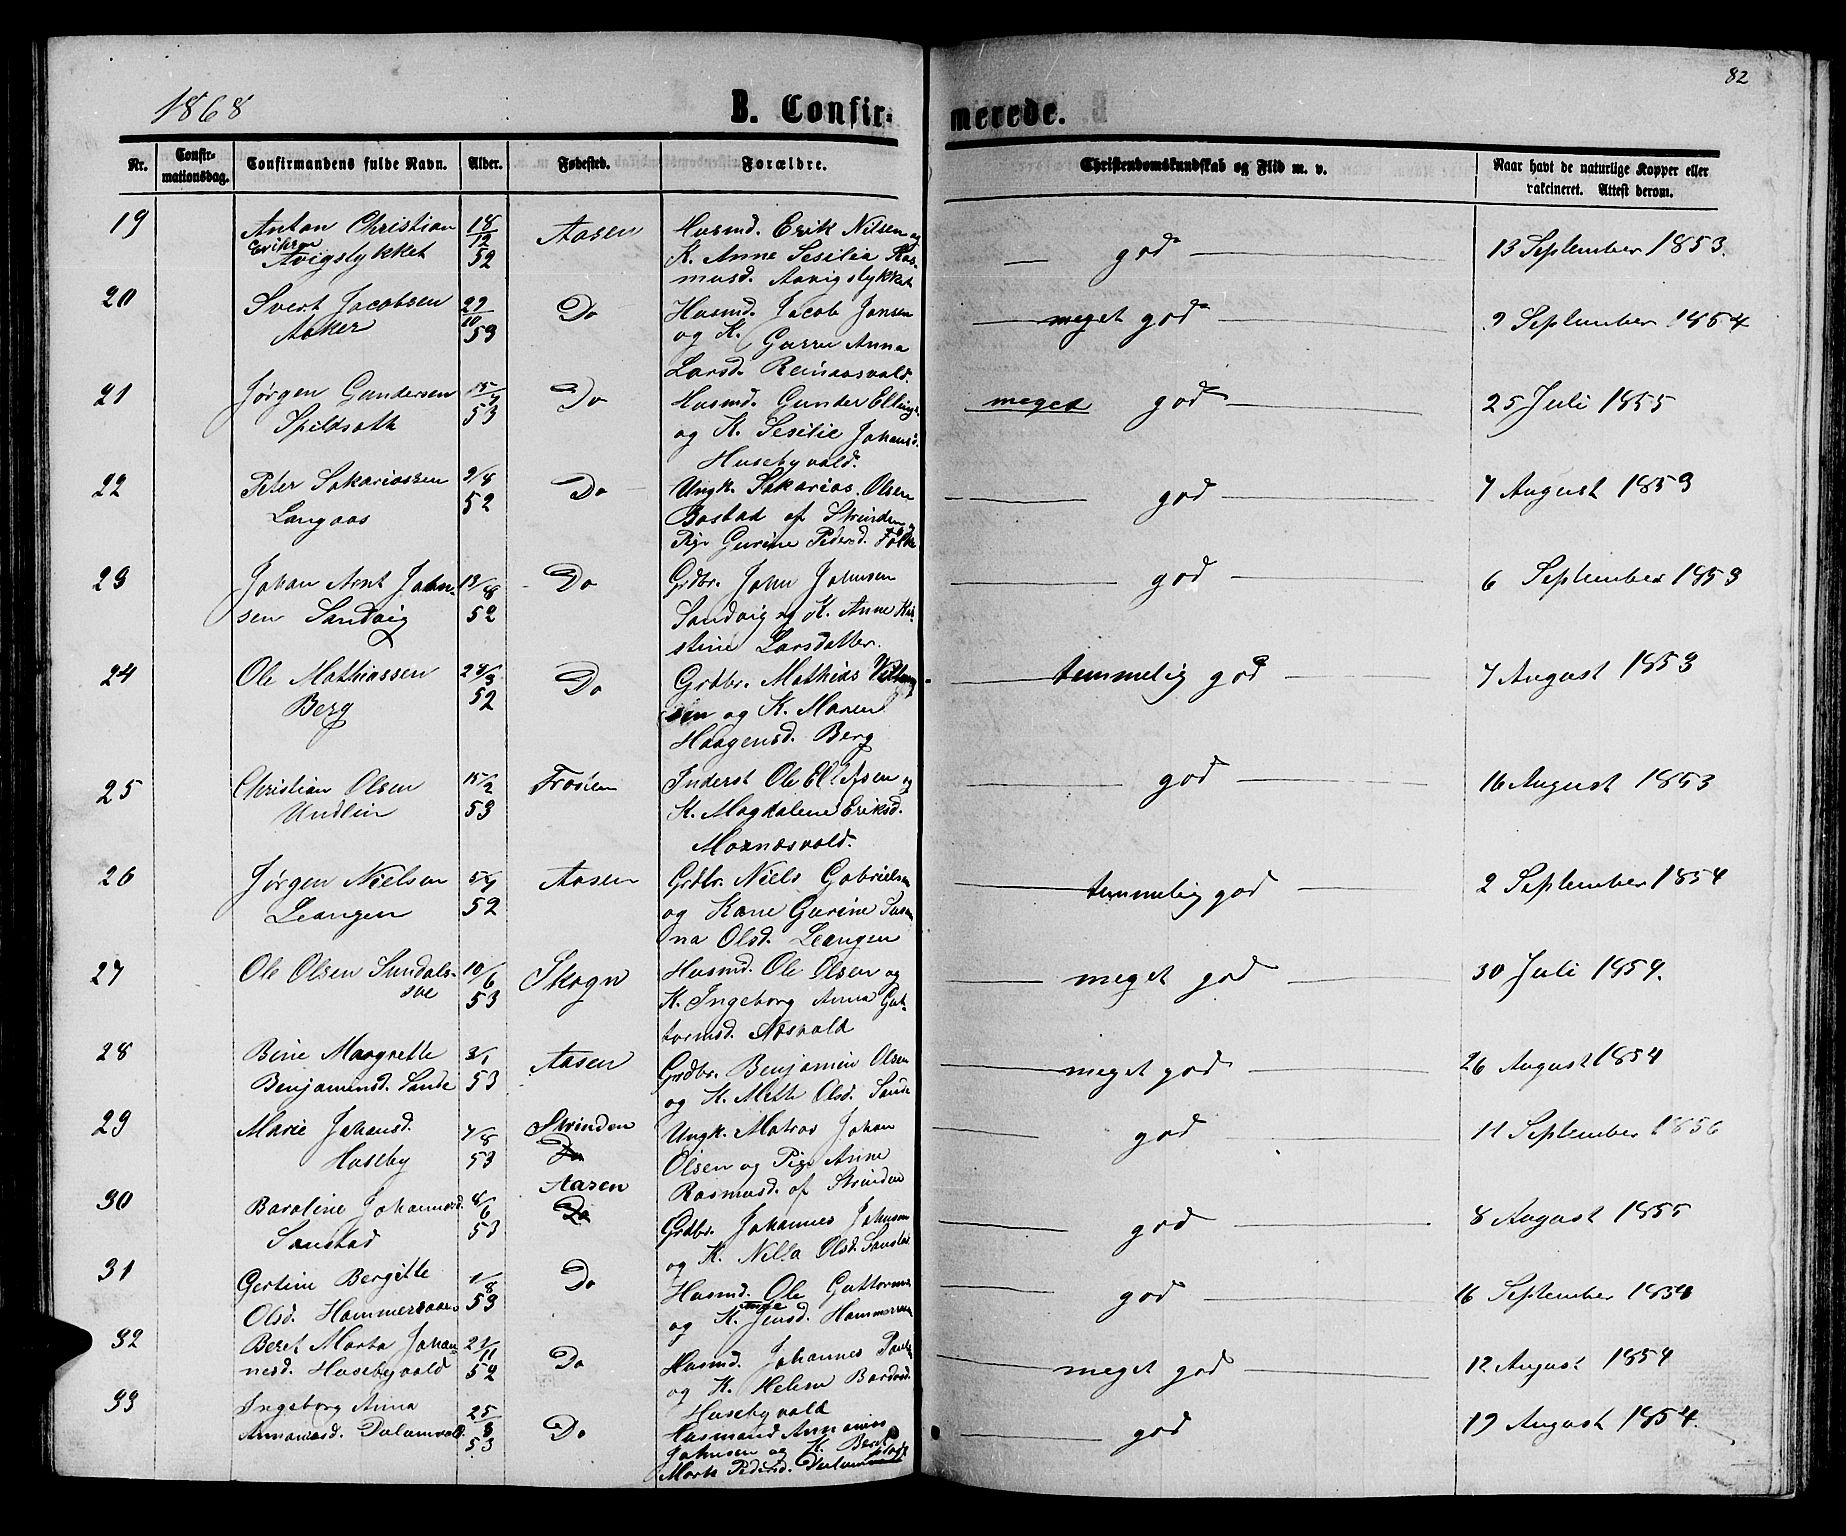 82
1868
B. Confir- merede.
Nr. Confir- mationsdag. Confirmandens fulde Navn. Alder. Fødested. Forældre. Christendomskundskab og Flid m. v. Naar havt de naturlige Kopper eller vakcineret. Attest derom.
19 Anton Christian 18/12 Aasen Husmd. Erik Nilsen og god 13 September 1853.
Erikson Avigslykket 52 K. Anne Sesilia Ras-
musd. Aavigslykket
20 Sivert Jacobsen 27/10 Do Husmd. Jacob Jonsen meget god 9 September 1854
Aaker 53 og K. Gurru Anna
Larsd. Reinaasvald.
21 Jørgen Gundersen 15/7 Do Husmd. Gunder Ellings. meget god 25 Juli 1855
Spildsoth 53 og K. Sesilie Johansd.
Husebyvald.
22 Peter Sakariassen 9/8 Do Ungk. Sakarias Olsen god 7 August 1853
Langaas 52 Bostad af Strinden og
Pige Gurine Pedersd.
23 Johan Arnt John- 13/8 Do Grdbr. John Johnsen god 6 September 1853
sen Sandvig 52 Sandvig og K. Anne Ki-
stine Larsdatter.
24 Ole Mathiassen 24/3 Do Grdbr. Mathias temmelig god 7 August 1853
Berg 52 sen og K. Maren
Haagensd. Berg
25 Christian Olsen 15/2 Frosten Inderst Ole Ellefsen og god 16 August 1853
Undlin 53 K. Magdalene Eriksd.
Moxnæsvald.
26 Jørgen Nielsen 5/7 Aasen Grdbr. Niels Gabrielsen temmelig god 2 September 1854
Leangen 52 og Kone Gurine Susan
na Olsd. Leangen
27 Ole Olsen Sundals- 10/6 Skogn Husmd. Ole Olsen og meget god 30 Juli 1859.
53 K. Ingeborg Anna Gut-
tormsd. Næsvald
28 Bine Margrette 3/1 Aasen Grdbr. Benjamin Olsen meget god 26 August 1854
Benjaminsd. Sande 53 og K. Mette Olsd. Sande
29 Marie Johansd. 7/8 Strinden Ungk. Matros Johan god 11 September 1856
Huseby 53 Do Olsen og Pige Anne
Rasmusd. af Strinden
30 Baroline Johannesd. 8/6 Aasen Do Grdbr. Johannes Johnsen god 8 August 1855
Sanstad 53 og K. Nilla Olsd. Sanstad
31 Gertine Bergitte 1/8 Do Husmd. Ole Guttorms god 16 September 1854
Olsd. Hammersaar 53 og K. Jensd. Hammersaar
32 Beret Marta Johan- 21/11 Do Husmd. Johannes Paulsen meget god 12 August 1854
nesd. Husebyvald 52 og K. Helena Bardosd.
Husebyvald
33 Ingeborg Anna 25/8 Do Husmand Annanias god 19 August 1854.
Annaniasd. Dalamvald. 53 Johnsen og K. Beret
Marta Pedersd.